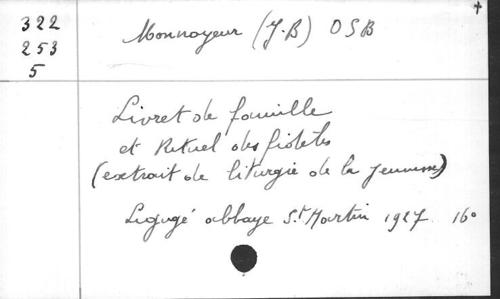 322
253
5
Monnoyeur (J.B) OSB
Livret de famille
et Rituel des fidèles
(extrait de liturgie de la jeunesse)
Ligugé abbaye St Martin 1927 16°